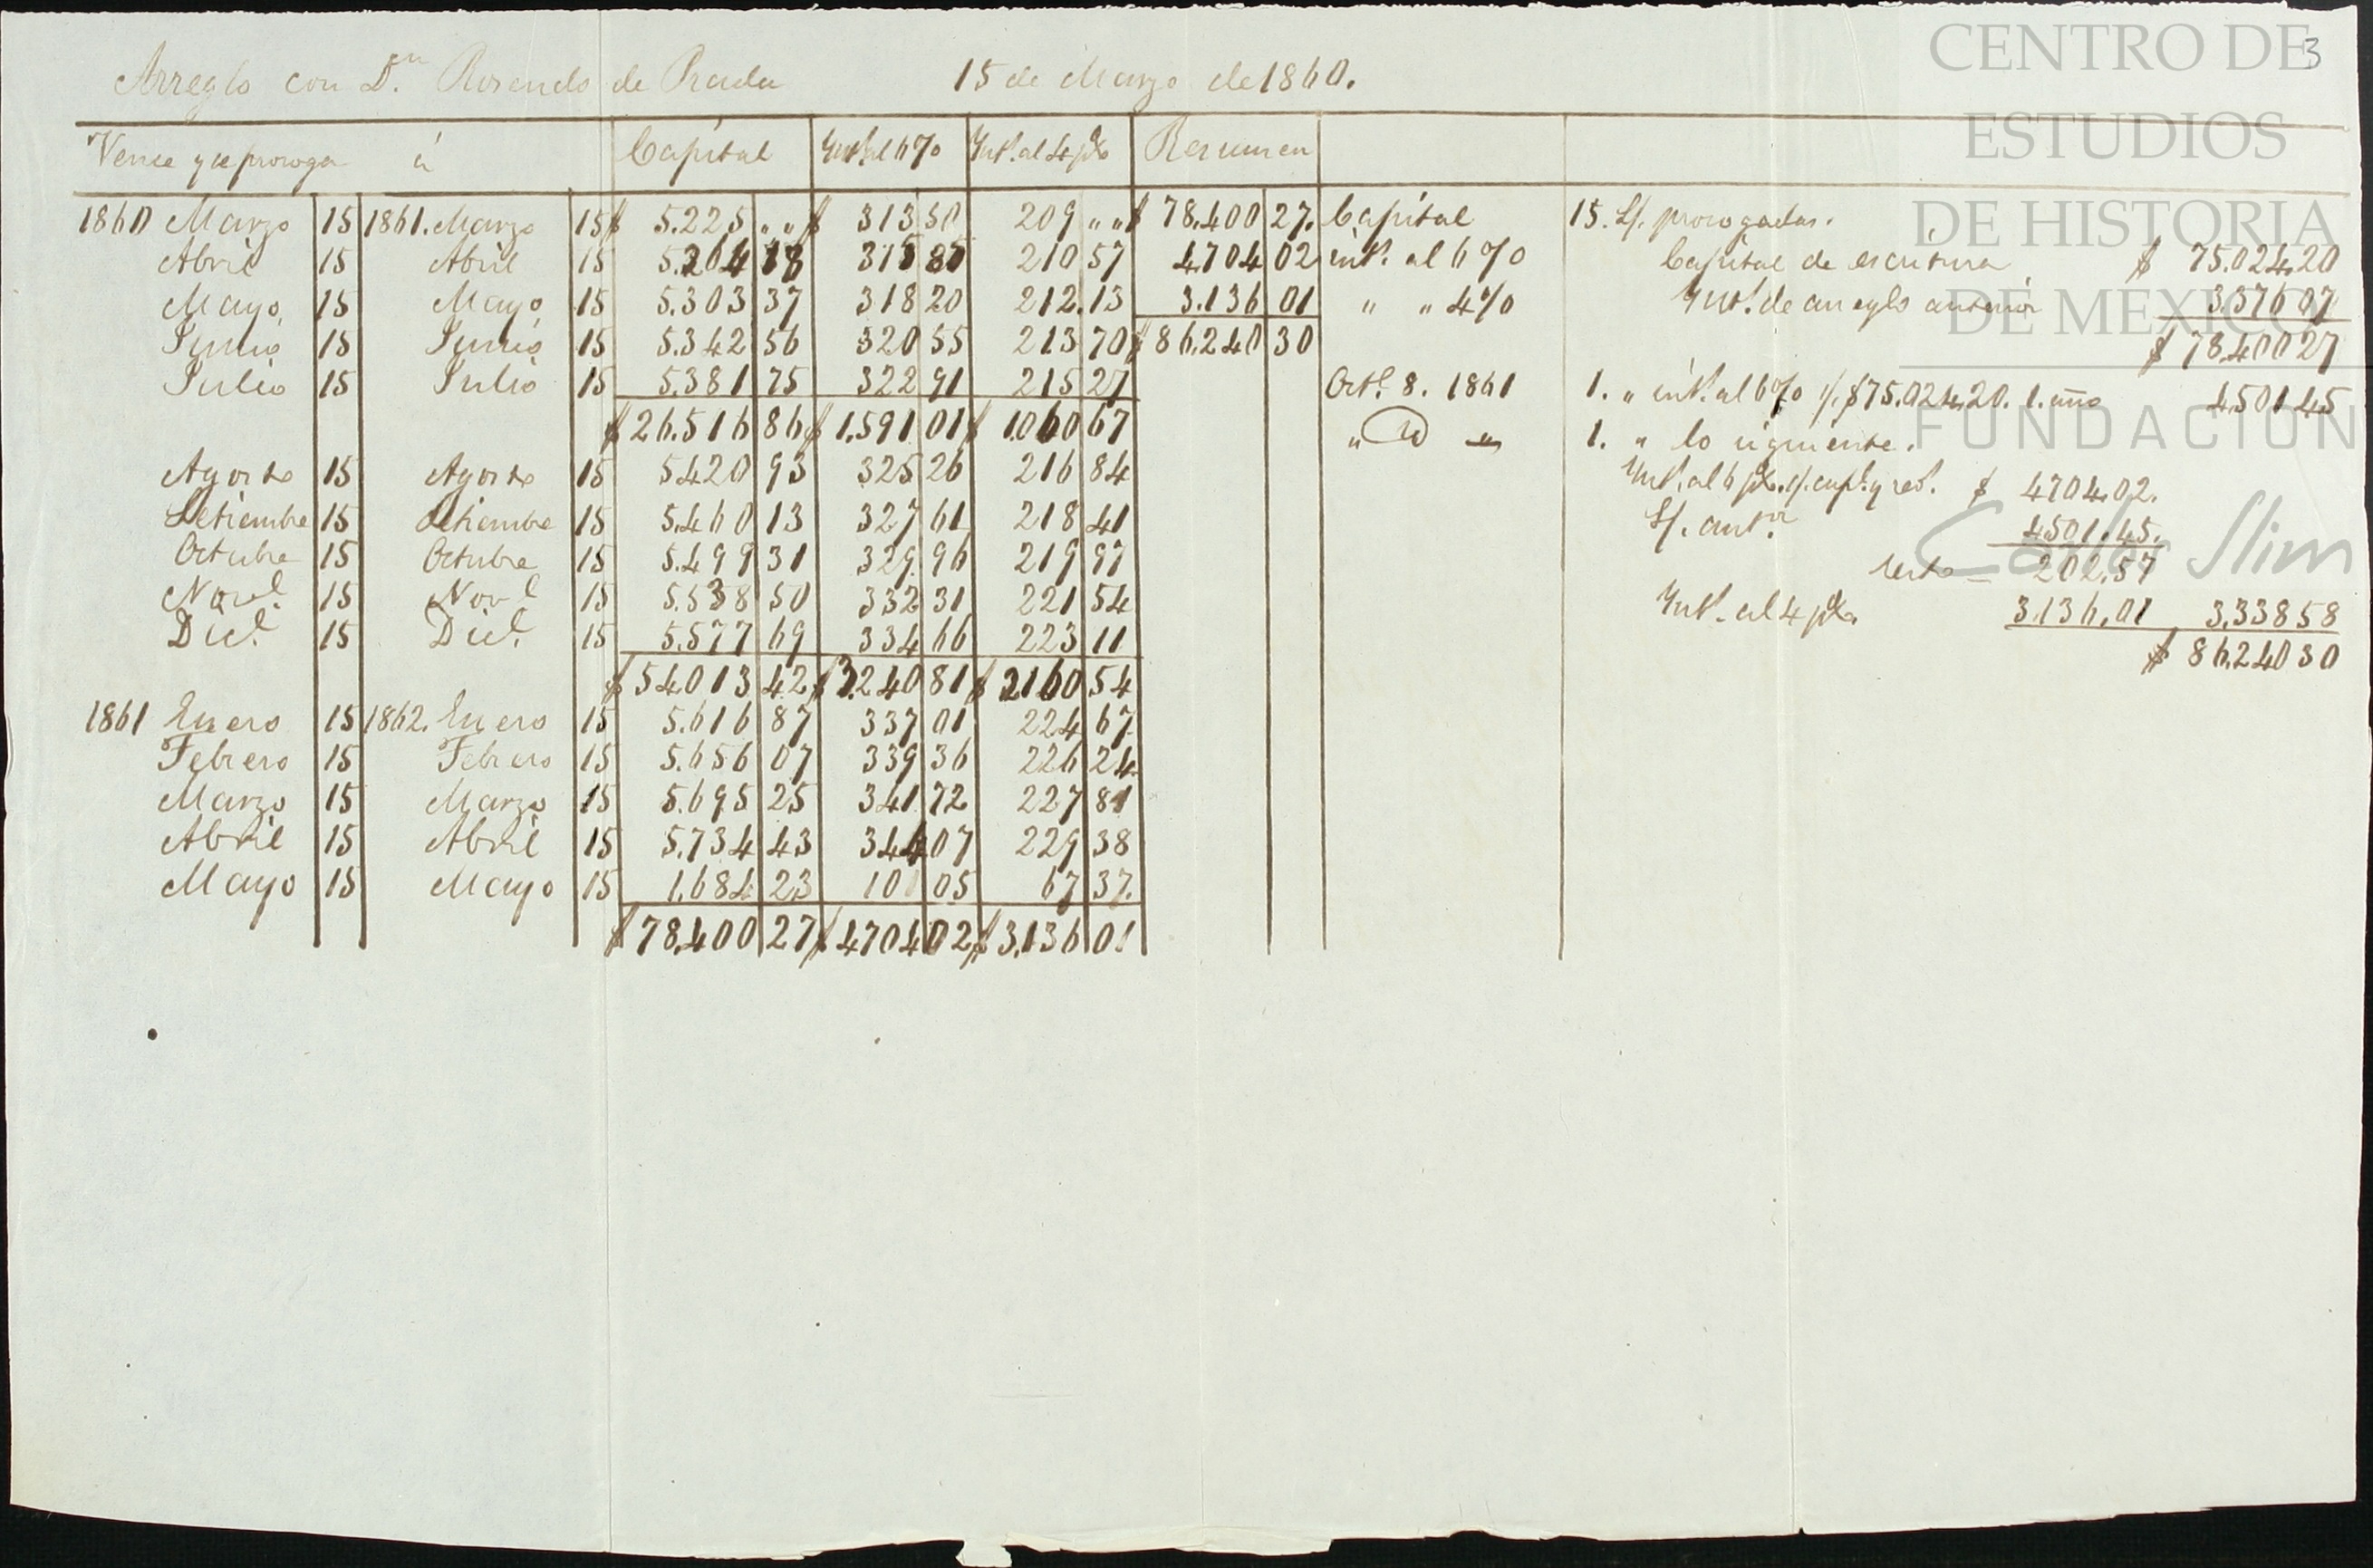 CENTRO DE
ESTUDIOS
DE HISTORIA
DE MEXICO
FUNDACION
Carlos Slim
3
Arreglo con Dn. Rosendo de Prada 15 de Marzo de 1860.
Vence y se proroga á Capital Int. al 6% Int. al 4 p% Resumen
1860 Marzo 15 1861. Marzo 15 $ 5.225 „ „ $ 313 50 209 „ „ $ 78.400 27. Capital 15. L/. prorogadas.
Abril 15 Abril 15 5.264 18 315 85 210 57 4.704 02 int. al 6% Capital de escritura $ 75.024.20
Mayo 15 Mayo 15 5.303 37 318 20 212.13 3.136 01 „ „ 4% Int. de arreglo anterior 3.376 07
Junio 15 Junio 15 5.342 56 320 55 213 70 $ 86.240 30 $ 78.400 27
Julio 15 Julio 15 5.381 75 322 91 215 27 Oct. 8. 1861 1. „ int. al 6% s/. $75.024.20. 1. año 4.501 45
$ 26.516 86 $ 1.591 01 $ 1.060 67 „ „ 1. „ lo siguiente.
Agosto 15 Agosto 15 5.420 93 325 26 216 84 Int. al 6 p% s/. cap. y red. $ 4704.02.
Setiembre 15 Setiembre 15 5.460 13 327 61 218 41 L/. antr. 4501.45.
Octubre 15 Octubre 15 5.499 31 329 96 219 97 resto 202.57
Novl. 15 Novl 15 5.538 50 332 31 221 54 Int. al 4 p% 3.136.01 3.338 58
Dicl. 15 Dicl. 15 5.577 69 334 66 223 11 $ 86.240 30
$ 54.013 42 $ 3.240 81 $ 2160 54
1861 Enero 15 1862. Enero 15 5.616 87 337 01 224 67
Febrero 15 Febrero 15 5.656 07 339 36 226 24
Marzo 15 Marzo 15 5.695 25 341 72 227 81
Abril 15 Abril 15 5.734 43 344 07 229 38
Mayo 15 Mayo 15 1.684 23 101 05 67 37.
$ 78.400 27 $ 4704 02 $ 3.136 01